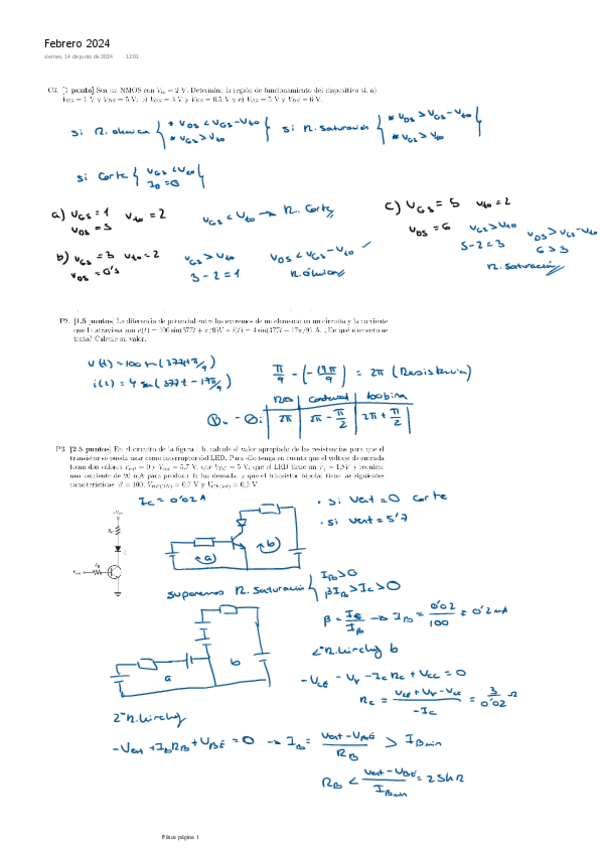 Febrero 2024
viernes, 14 de junio de 2024 13:01
C3. [1 punto] Sea un NMOS con Vt0 = 2 V. Determine la región de funcionamiento del dispositivo si. a)
VGS = 1 V y VDS = 5 V. b) VGS = 3 V y VDS = 0.5 V y c) VGS = 5 V y VDS = 6 V.
si R. ohmica { * VDS < VGS - Vto
* VGS > Vto
si R. saturación { * VDS > VGS - Vto
* VGS > Vto
si corte { VGS < Vto
ID = 0
a) VGS = 1 Vto = 2
VDS = 5
VGS < Vto → R. Corte
b) VGS = 3 Vto = 2
VDS = 0'5
VGS > Vto
3 - 2 = 1
VDS < VGS - Vto
R. óhmica
c) VGS = 5 Vto = 2
VDS = 6
VGS > Vto
5 - 2 = 3
VDS > VGS - Vto
6 > 3
R. saturación
P2. [1.5 puntos] La diferencia de potencial entre los extremos de un elemento en un circuito y la corriente
que lo atraviesa son v(t) = 100 sin(377t + π/9)V e i(t) = 4 sin(377t − 17π/9) A. ¿De qué elemento se
trata? Calcule su valor.
v(t) = 100 sen(377t + π/9)
i(t) = 4 sen(377t - 17π/9)
π/9 - (-17π/9) = 2π (Resistencia)
Res Condensad bobina
Øv - Øi 2π 2π - π/2 2π + π/2
P3. [2.5 puntos] En el circuito de la figura 1.b. calcule el valor apropiado de las resistencias para que el
transistor se pueda usar como interruptor del LED. Para ello tenga en cuenta que el voltaje de entrada
toma dos valores Vent = 0 y Vent = 5.7 V, que VCC = 5 V, que el LED tiene un Vγ = 1.8V y requiere
una corriente de 20 mA para producir la luz deseada, y que el transistor bipolar tiene las siguientes
características β = 100, VBE(ON) = 0,7 V y VCE(sat) = 0,2 V.
IC = 0'02 A
· si Vent = 0 corte
· si Vent = 5'7
a) b)
suponemos R. saturación { IB > 0
βIB > IC > 0
β = IC/IB → IB = 0'02/100 = 0'2 mA
2ª R. Kirchoff b
a b
- VCE - Vγ - IC RC + VCC = 0
RC = (VCE + Vγ - VCC)/(-IC) = 3/0'02 Ω
2ª R. Kirchoff
- Vent + IB RB + VBE = 0 → IB = (Vent - VBE)/RB > IBmin
RB < (Vent - VBE)/IBmin = 25 kΩ
Física página 1